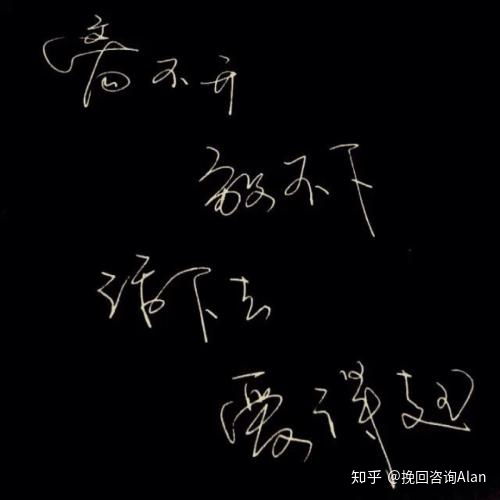 离不开
放不下
活下去
爱得起
知乎 @挽回咨询Alan